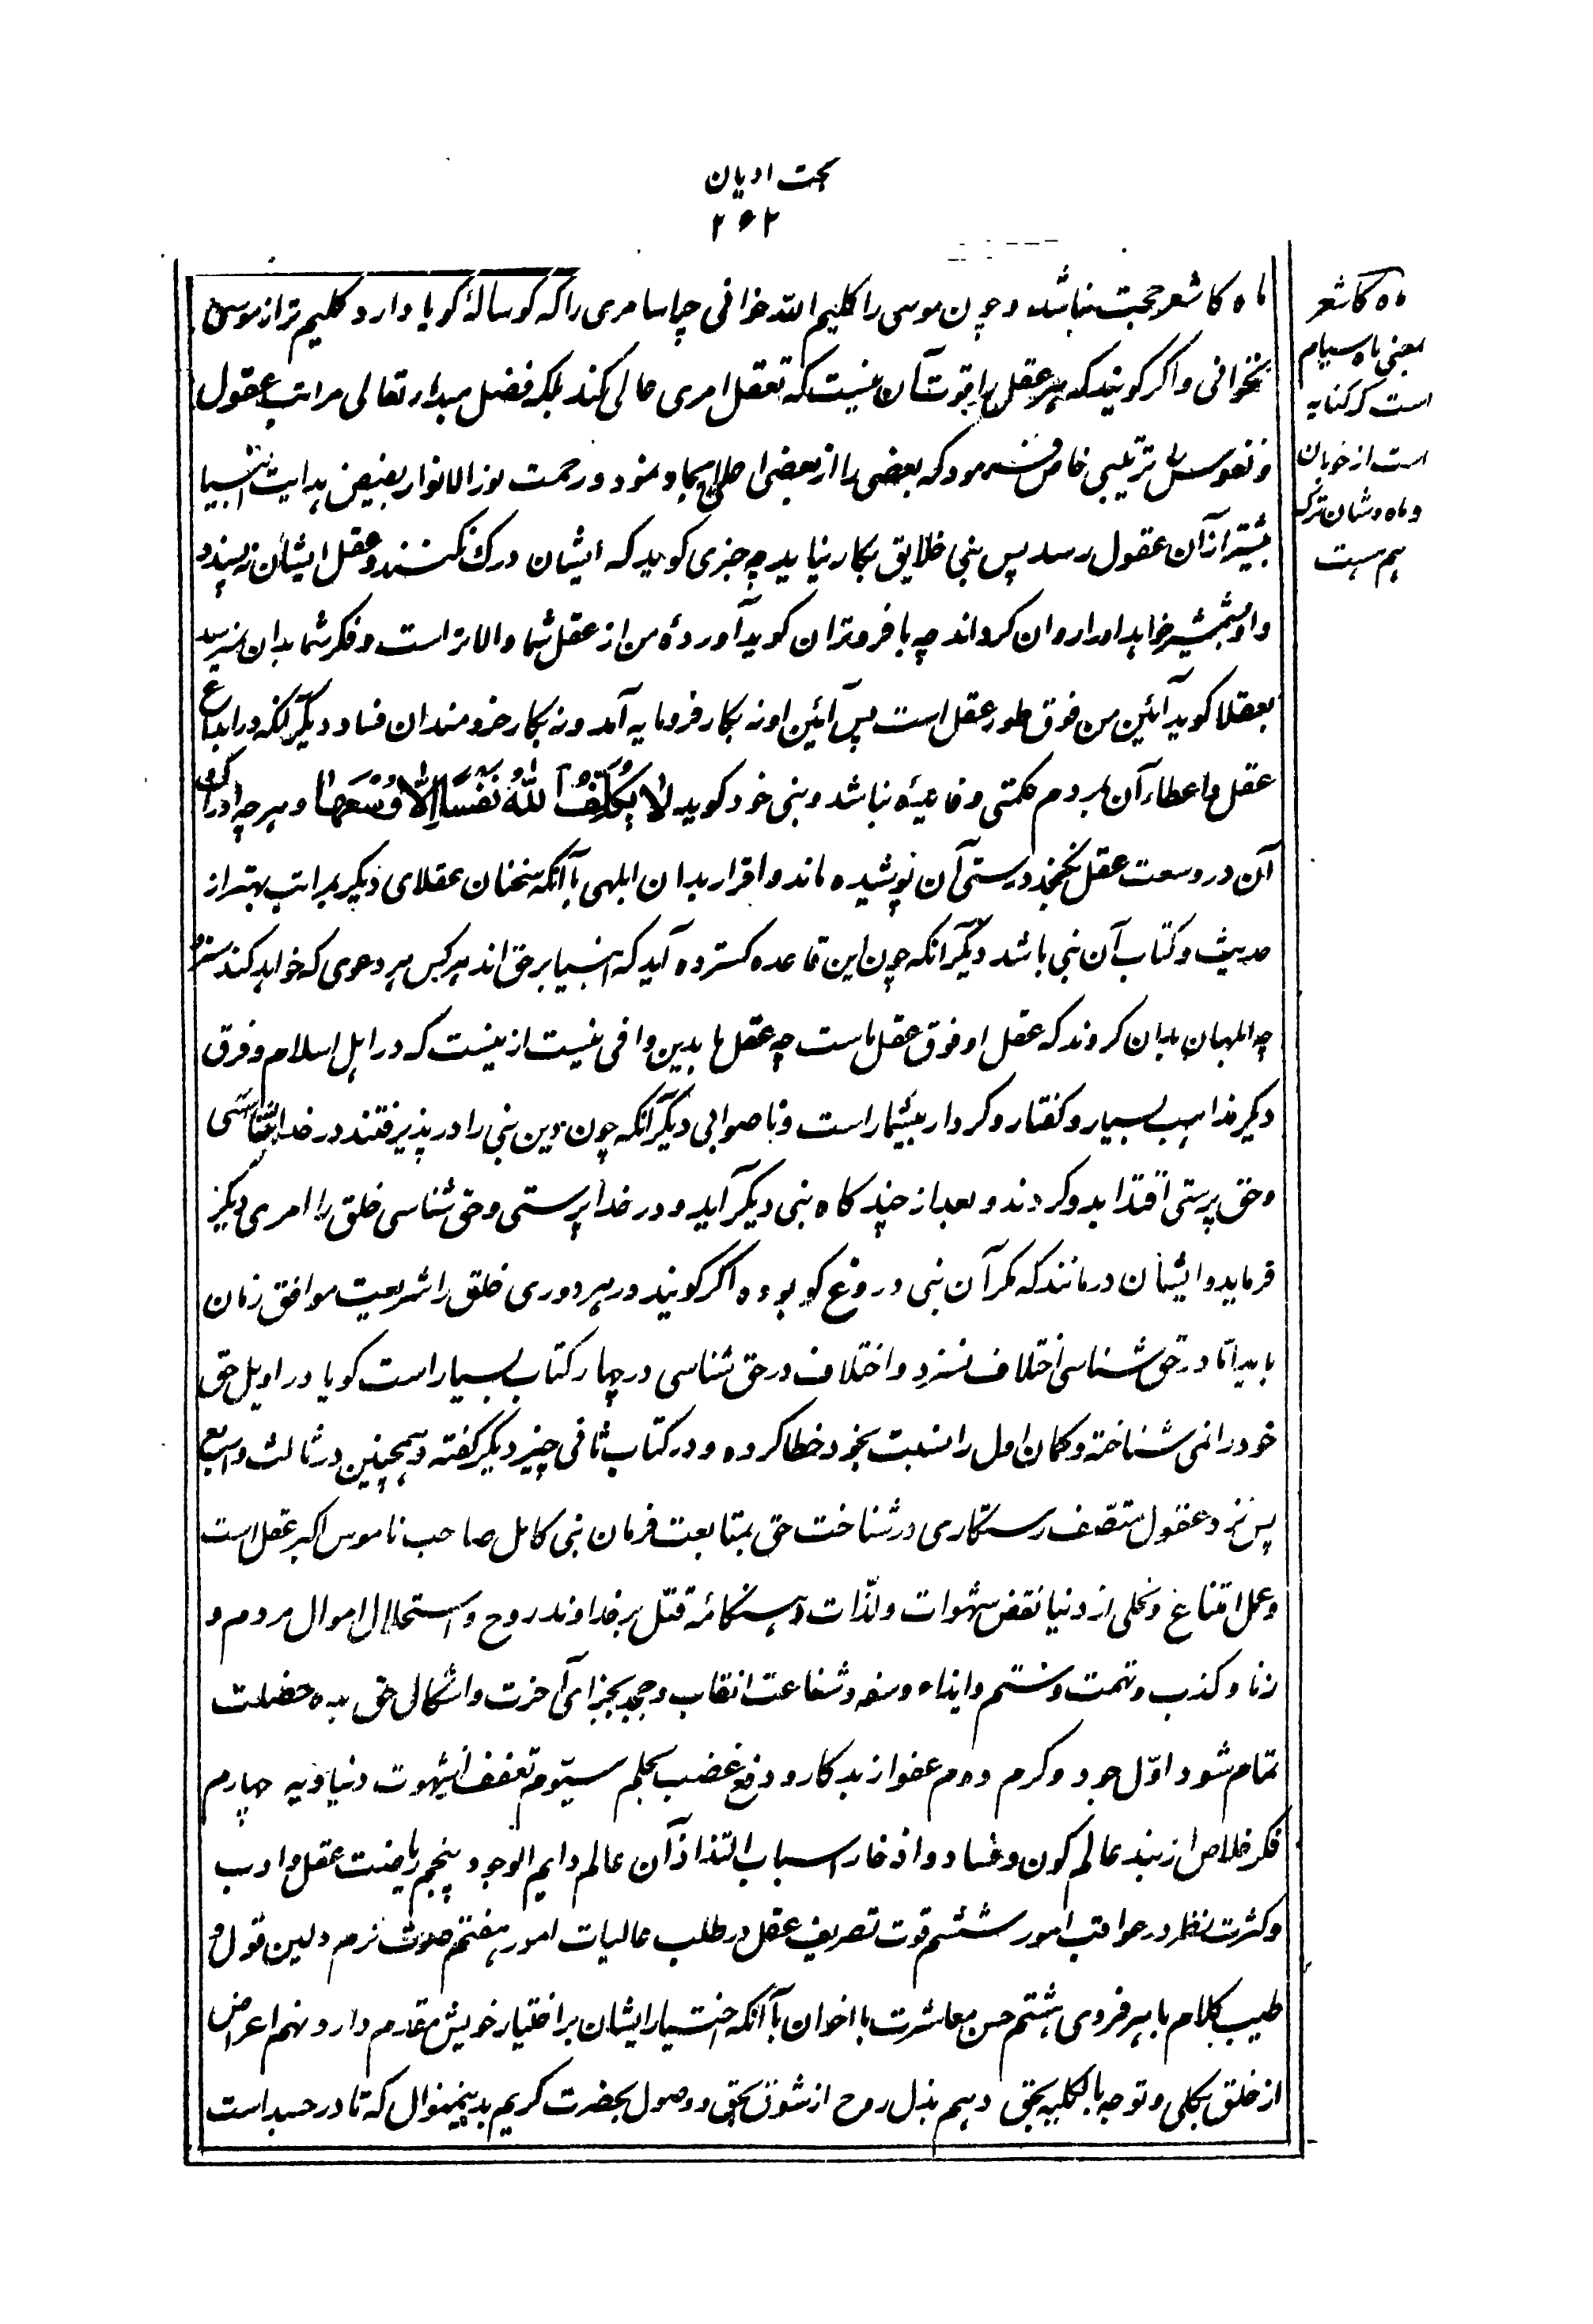 بحث ادیان
۲۶۲
ماه کاشغر حجت نباشد و چون موسی را کلیم الله خوانی چرا سامری را که گوسالهٔ گویا دارد کلیم تر از موسی
نخوانی و اگر گویند که هر عقل را قوت آن نیست که تعقل امری عالی کند بلکه فضل مبدا تعالی مراتب عقول
و نفوس را ترتیبی خاص فرمود که بعضی را از بعضی اعلی ایجاد نمود و رحمت نور الانوار بفیض هدایت انبیا
بیشتر از آن عقول رسد پس نبی خلایق بکار نیاید چه چیزی گوید که ایشان درک نکنند و عقل ایشان نپسندد
و او بشمشیر خواهد او را روان گرداند چه با فروتران گوید آوردهٔ من از عقل شما والاتر است و فکر شما بدان نرسد
بعقلا گوید آئین من فوق طور عقل است پس آئین او نه بکار فرومایه آمد و نه بکار خردمندان فساد دیگر آنکه در ابداع
عقل و اعطاء آن بمردم حکمتی و فایدهٔ نباشد و نبی خود گوید لَا یُکَلِّفُ اللهُ نَفْسًا اِلَّا وُسْعَهَا و هر چه ادراک
آن در وسعت عقل نگنجد درستی آن پوشیده ماند و اقرار بدان ابلهی با آنکه سخنان عقلای دیگر بمراتب بهتر از
حدیث و کتاب آن نبی باشد دیگر آنکه چون این قاعده گسترده آید که انبیا بر حق اند هر کس هر دعوی که خواهد کند
چه ابلهان بدان گروند که عقل او فوق عقل ماست چه عقل ها بدین وافی نیست ازینست که در اهل اسلام و فرق
دیگر مذاهب بسیار و گفتار و کردار بیشمار است و ناصوابی دیگر آنکه چون دین نبی را در پذیرفتند در خدا شناسی
و حق پرستی اقتدا بدو کردند و بعد از چند گاه نبی دیگر آید و در خدا پرستی و حق شناسی خلق را امری دیگر
فرماید و ایشان درمانند که مگر آن نبی دروغ گو بوده اگر گویند در هر دوری خلق را شریعت موافق زمان
باید اما در حق شناسی اختلاف نسزد و اختلاف در حق شناسی در چهار کتاب بسیار است گویا در اویل حق
خود را نمی شناخته و گمان اول را نسبت بخود خطا کرده و در کتاب ثانی چیز دیگر گفته و همچنین در ثالث و رابع
پس نزد عقول متصف رستگاری در شناخت حق بمتابعت فرمان نبی کامل صاحب ناموس اکبر عقل است
و عمل اقناع و تخلی از دنیا نقض شهوات و لذّات قتل بر خداوند روح و استحلال اموال مردم و
زنا و کذب و تهمت و ستم و ایذاء و سفه و شفاعت القاب و جحد بجزای آخرت و اشکالی حق بده خصلت
تمام شود اوّل جود و کرم دوم عفو از بدکار و دفع غضب بحلم سیّوم تعفف از شهوت دنیاویه چهارم
فکر خلاص از بند عالم کون و فساد و اذخار اسباب التذاذ آن عالم دایم الوجود پنجم ریاضت عقل و ادب
و کثرت نظر در عواقب امور ششم قوت تصریف عقل در طلب عالیات امور هفتم صوت نرم و لین قول و
طیب کلام با هر فردی هشتم حسن معاشرت با اخوان با آنکه اختیار ایشان بر اختیار خویش مقدم دارد نهم اعراض
از خلق بکلی و توجه بالکلیه بحق دهم بذل روح از شوق بحق و وصول بحضرت کریم بدینمنوال که تا در جسد است
ماه کاشغر
یعنی ماه سیام
است که کنایه
است از خوبان
و ماه وشان ترک
هم هست